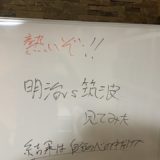 熱いぞ!!
明治vs筑波
見てみた
結果は自分の